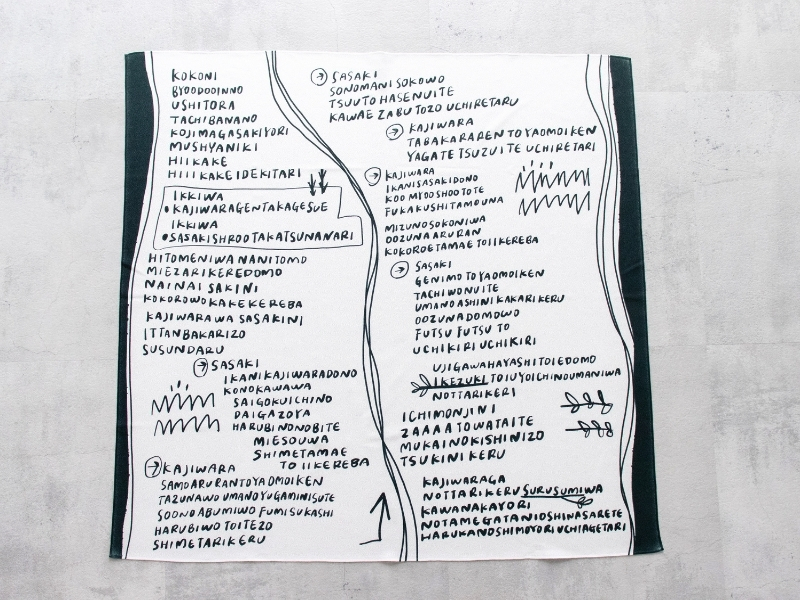 KOKONI
BYOODOOINNO
USHITORA
TACHIBANANO
KOJIMAGASAKIYORI
MUSHYANIKI
HIIKAKE
HIIIKAKEIDEKITARI
IKKIWA
•KAJIWARAGENTAKAGESUE
IKKIWA
•SASAKISHIROOTAKATSUNANARI
HITOMENIWA NANITOMO
MIEZARIKEREDOMO
NAINAI SAKINI
KOKOROWO KAKEKEREBA
KAJIWARAWA SASAKINI
ITTANBAKARIZO
SUSUNDARU
SASAKI
IKANIKAJIWARADONO
KONOKAWAWA
SAIGOKUICHINO
DAIGAZOYA
HARUBINONOBITE
MIESOUWA
SHIMETAMAE
TO IIKEREBA
KAJIWARA
SAMOARURANTOYAOMOIKEN
TAZUNAWO UMANOYUGAMINISUTE
SOONO ABUMIWO FUMISUKASHI
HARUBIWO TOITEZO
SHIMETARIKERU
SASAKI
SONOMANI SOKOWO
TSUUTO HASENUITE
KAWAE ZABUTOZO UCHIRETARU
KAJIWARA
TABAKARAREN TO YAOMOIKEN
YAGATE TSUZUITE UCHIRETARI
KAJIWARA
IKANISASAKIDONO
KOOMYOOSHOOTOTE
FUKAKUSHITAMOUNA
MIZUNOSOKONIWA
OOZUNAARURAN
KOKOROETAMAE TOIIKEREBA
SASAKI
GENIMO TO YAOMOIKEN
TACHIWONUITE
UMANOASHINI KAKARIKERU
OOZUNADOMOWO
FUTSU FUTSU TO
UCHIKIRIUCHIKIRI
UJIGAWAHAYASHITOIEDOMO
IKEZUKITOIUYOICHINOUMANIWA
NOTTARIKERI
ICHIMONJINI
ZAAAATOWATAITE
MUKAINOKISHINIZO
TSUKINIKERU
KAJIWARAGA
NOTTARIKERU SURUSUMIWA
KAWANAKAYORI
NOTAMEGATANIOSHINASARETE
HARUKANOSHIMOYORIUCHIAGETARI